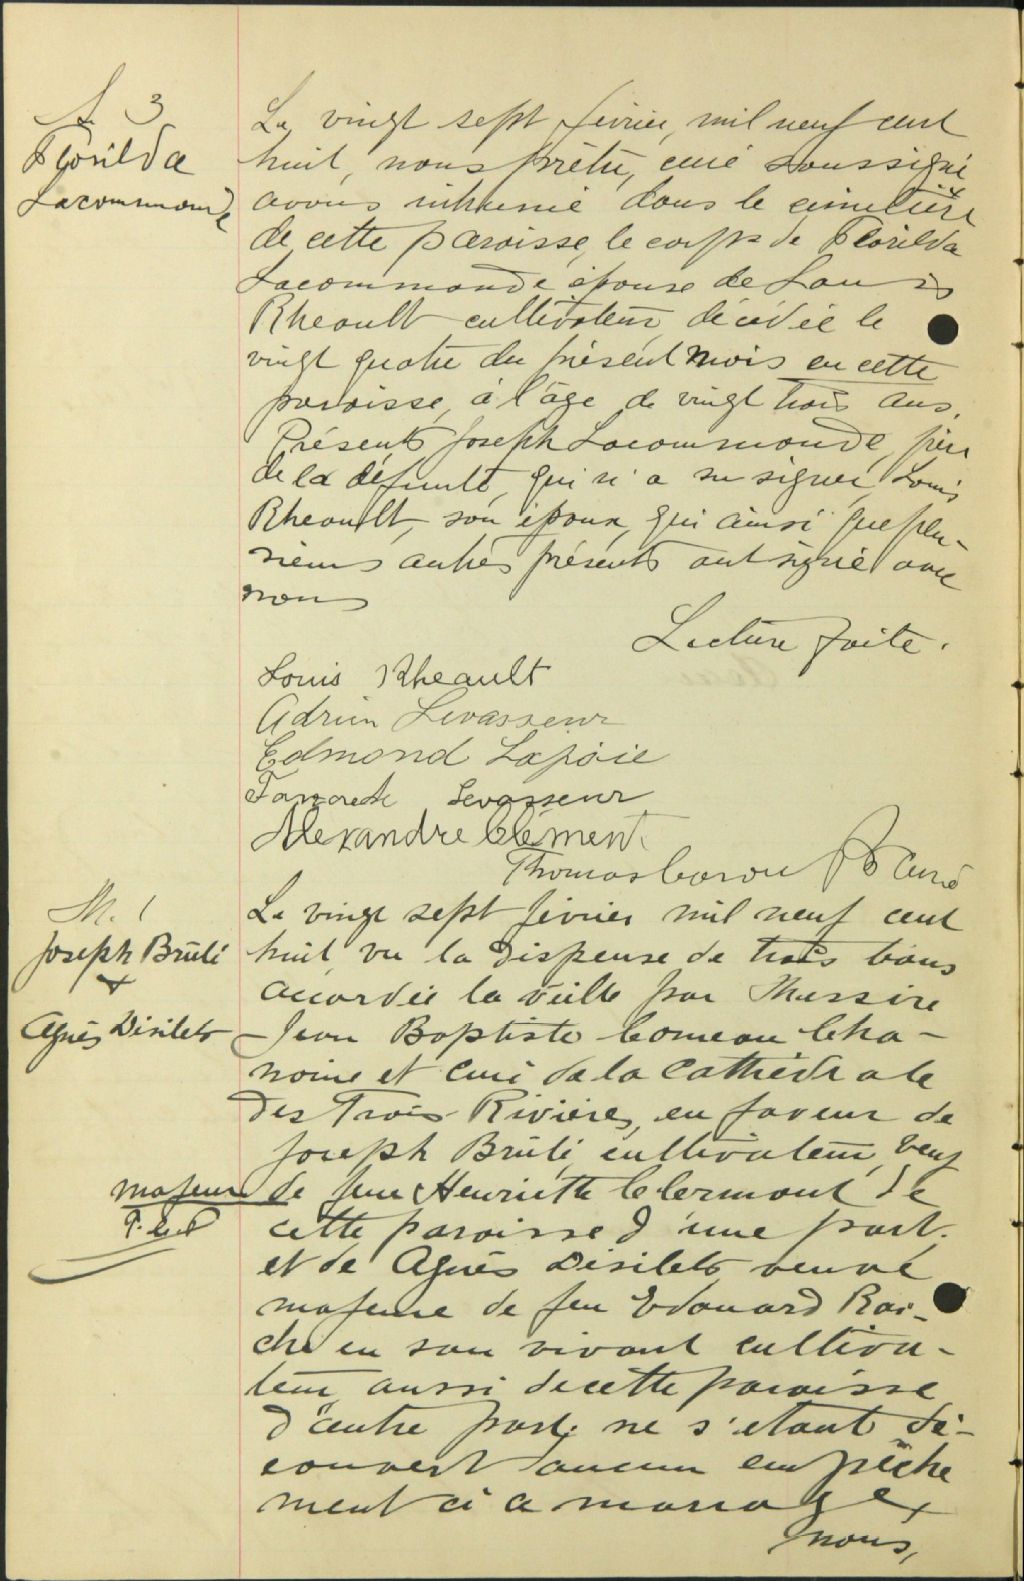 S. 3
Florilda
Lacommande
Le vingt sept février, mil neuf cent
huit, nous prêtre, curé soussigné
avons inhumé dans le cimetière
de cette paroisse, le corps de Florilda
Lacommande épouse de Louis
Rheault cultivateur, décédée le
vingt quatre du présent mois en cette
paroisse, à l'âge de vingt trois ans.
Présents Joseph Lacommande, père
de la défunte, qui n'a su signer, Louis
Rheault, son époux, qui ainsi que plu-
sieurs autres présents ont signé avec
nous
Lecture faite.
Louis Rheault
Adrien Levasseur
Edmond Lajoie
Levasseur
Alexandre Clément
Thomas Caron Ptre Curé
M. 1
Joseph Brûlé
+
Agnès Désilets
Le vingt sept février mil neuf cent
huit, vu la dispense de trois bans
accordée la veille par Messire
Jean Baptiste Comeau Cha-
noine et curé de la Cathédrale
des Trois-Rivières, en faveur de
Joseph Brûlé, cultivateur, veuf
majeur de feue Henriette Clermont de
T. C. P
cette paroisse d'une part.
et de Agnès Désilets veuve
majeure de feu Edouard Rai-
che en son vivant cultiva-
teur, aussi de cette paroisse
d'autre part; ne s'étant dé-
couvert aucun empêche
ment à ce mariage,
nous,